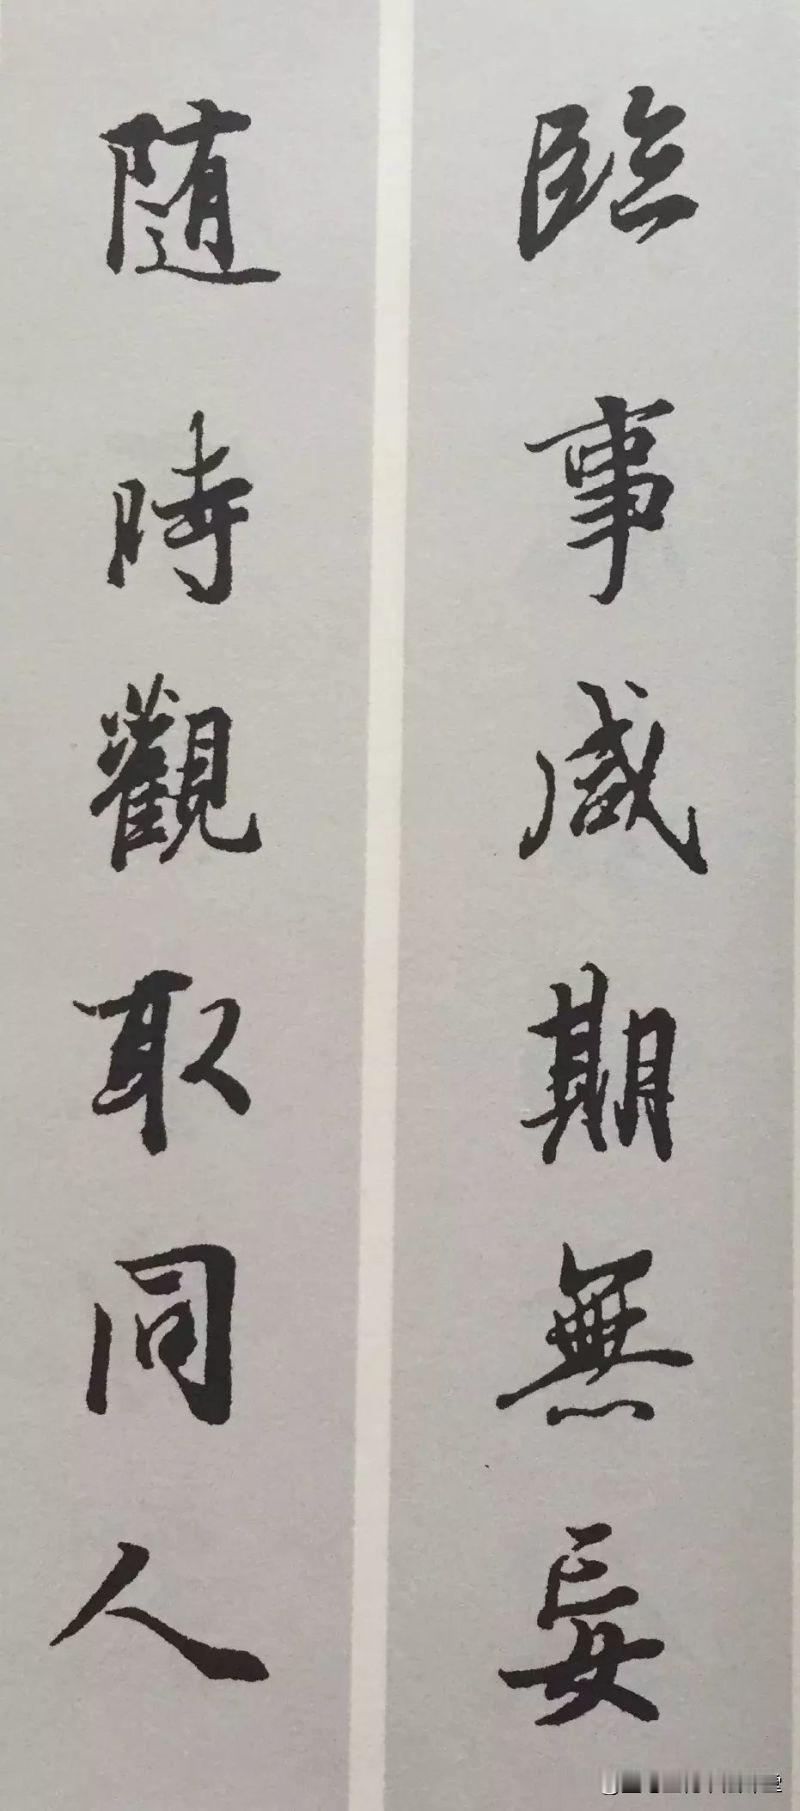 臨事咸期無妄
随時觀取同人